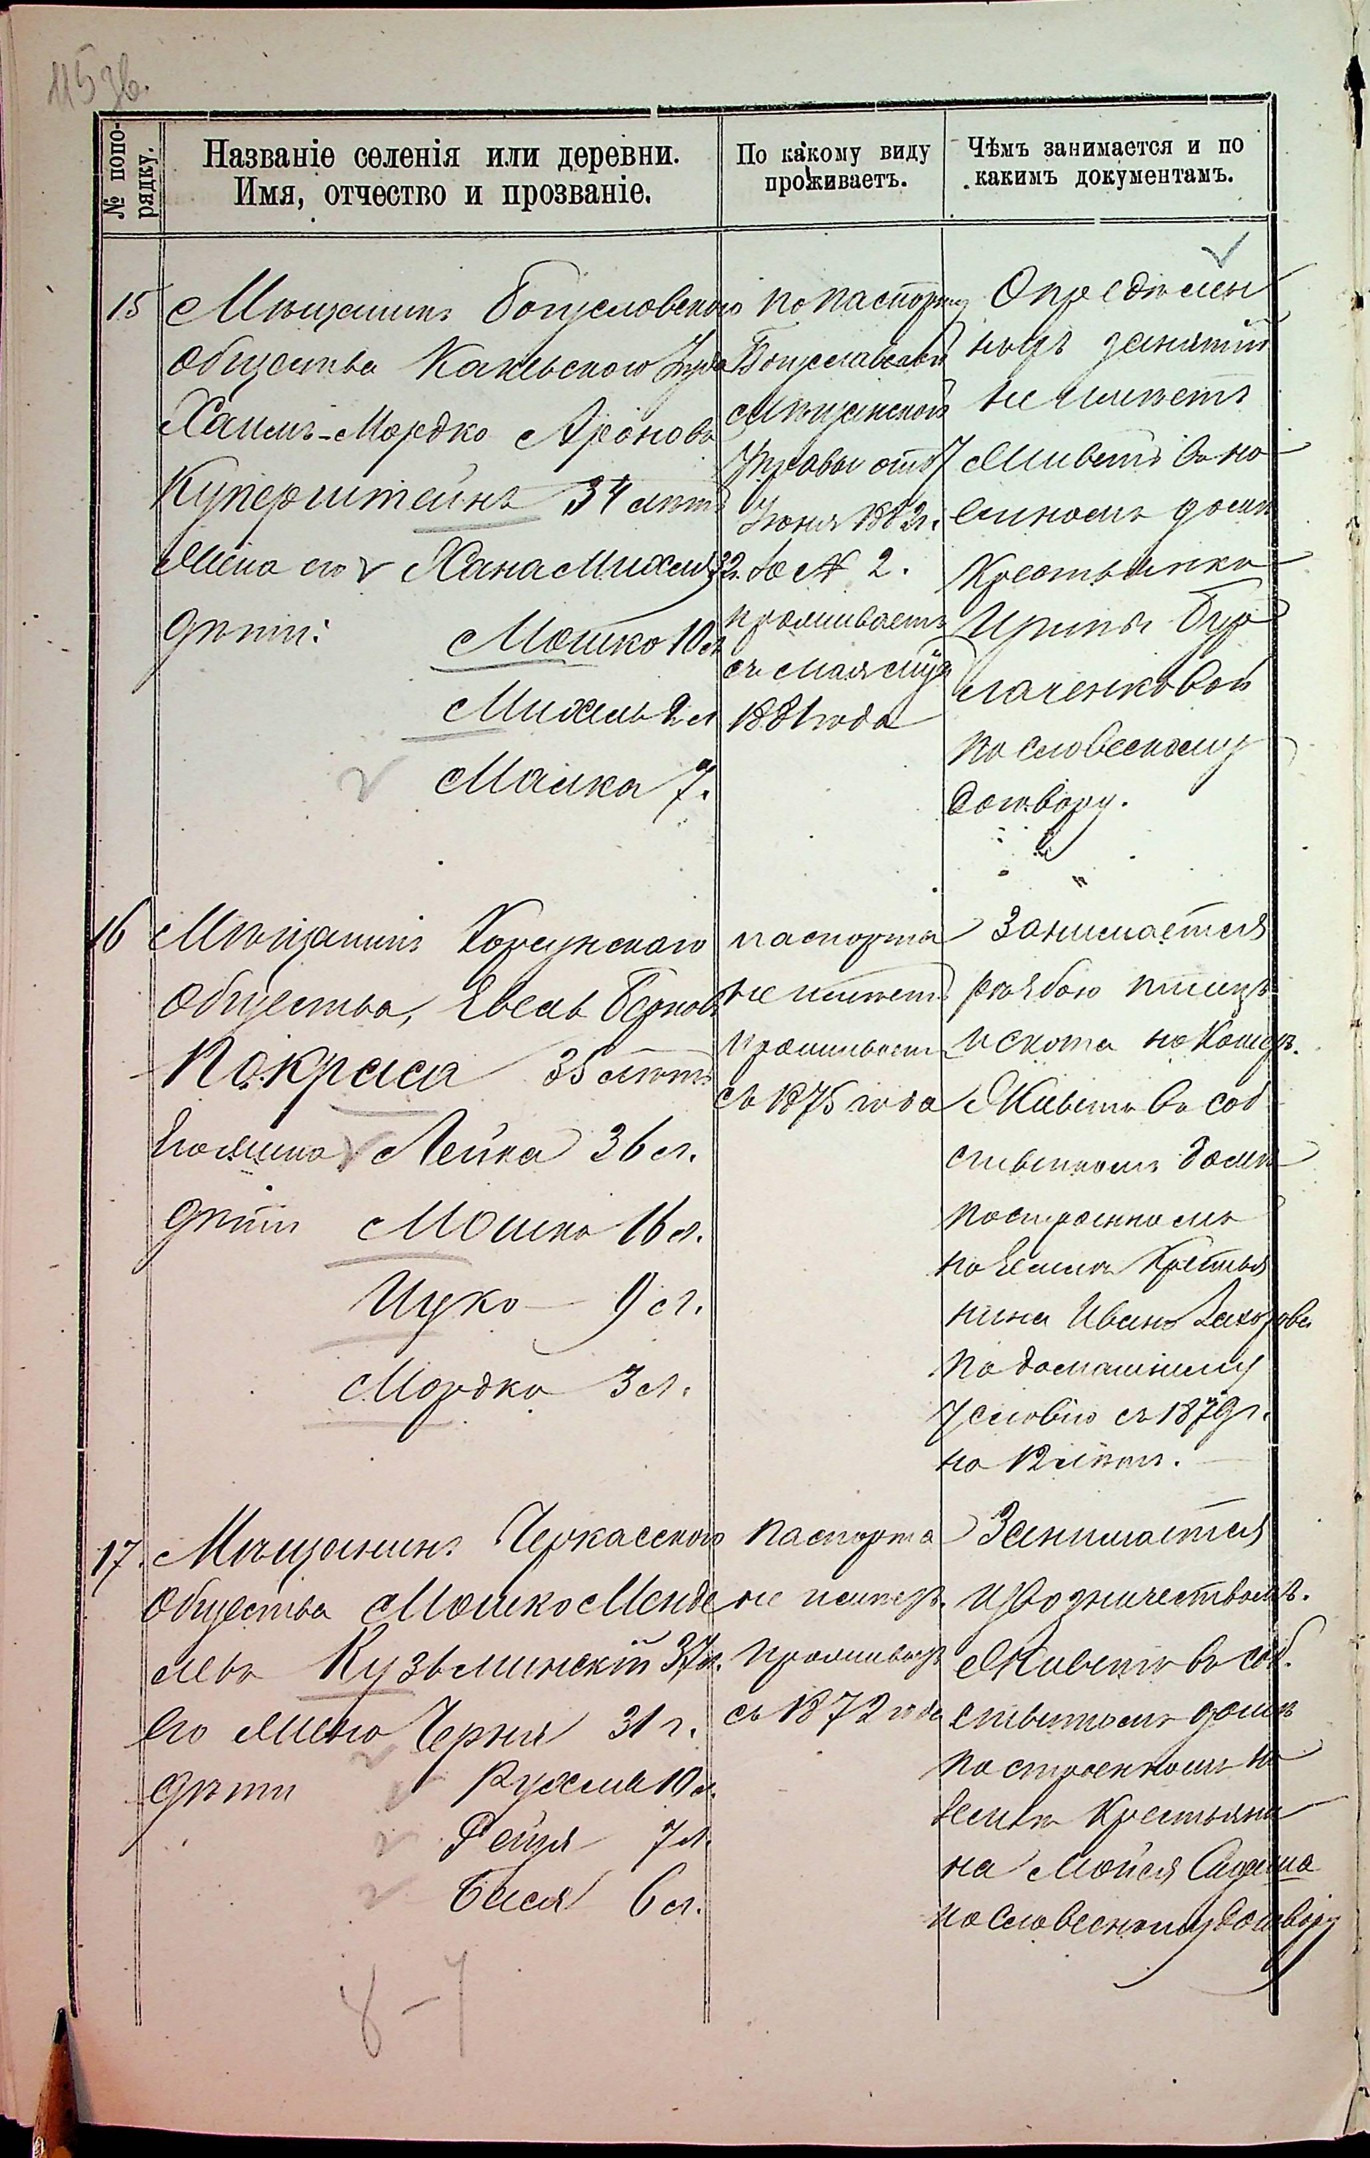 115 зв.
№ попо-
рядку.
Названіе селенія или деревни.
Имя, отчество и прозваніе.
По какому виду
проживаетъ.
Чѣмъ занимается и по
какимъ документамъ.
15
Мѣщанинъ Богуславского
общества Каневского уѣзда
Хаимъ-Мордко Ароновъ
Куперштейнъ 34 лѣтъ
Жена его Хана Михля 32.
дѣти: Мошко 10 л
Михель 2 л
Малка 7.
по паспорту
Богуславской
Мѣщанской
Управы отъ 7
Іюня 1882 г.
за № 2.
проживаетъ
съ мая мѣс
1881 года
Опредѣлен
ныхъ занятій
не имѣетъ
Живетъ въ на
емномъ домѣ
Крестьянки
Ирины Бур
лаченковой
по словесному
договору.
16
Мѣщанинъ Корсунскаго
общества, Евель Берковъ
Покраса 35 лѣтъ
Его жена Лейка 36 л.
дѣти Мошко 16 л.
Ицко 9 л.
Мордко 3 л.
паспорта
не имѣетъ
проживаетъ
съ 1875 года
Занимается
рѣзбою птицъ
и скота на кошеръ.
Живетъ въ соб
ственномъ домѣ
построенномъ
на землѣ Крестья
нина Ивана Захарова
по домашнему
условію съ 1879 г.
на 12 лѣтъ.
17.
Мѣщанинъ Черкасского
общества Мошко Менде
левъ Кузьминскій 37 л.
Его жена Черня 31 г.
дѣти Рухля 10 л.
Рейзя 7 л.
Бася 6 л.
паспорта
не имѣетъ.
проживаетъ
съ 1872 года
Занимается
извозничествомъ.
Живетъ въ соб.
ственномъ домѣ
построенномъ на
землѣ Крестьяни
на Мойсея
по словесному договору
8 - 7